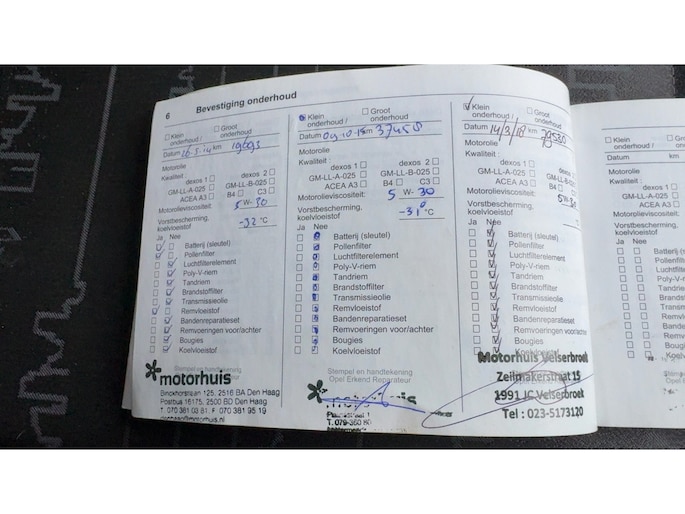 6
Bevestiging onderhoud
Klein onderhoud /
Groot onderhoud
Datum 26-5-14 km
Motorolie
Kwaliteit :
dexos 1
dexos 2
GM-LL-A-025
GM-LL-B-025
ACEA A3
B4
C3
Motorolieviscositeit:
5 W- 30
Vorstbescherming,
koelvloeistof
-32 °C
Ja Nee
Batterij (sleutel)
Pollenfilter
Luchtfilterelement
Poly-V-riem
Tandriem
Brandstoffilter
Transmissieolie
Remvloeistof
Bandenreparatieset
Remvoeringen voor/achter
Bougies
Koelvloeistof
Stempel en handtekening
motorhuis
Binckhorstlaan 125, 2516 BA Den Haag
Postbus 16175, 2500 BD Den Haag
Klein
onderhoud /
Groot
onderhoud
Datum 09-10-15 km 37458
Motorolie
Kwaliteit :
dexos 1
dexos 2
GM-LL-A-025
GM-LL-B-025
ACEA A3
B4
C3
Motorolieviscositeit:
5 W- 30
Vorstbescherming,
koelvloeistof
-31 °C
Ja Nee
Batterij (sleutel)
Pollenfilter
Luchtfilterelement
Poly-V-riem
Tandriem
Brandstoffilter
Transmissieolie
Remvloeistof
Bandenreparatieset
Remvoeringen voor/achter
Bougies
Koelvloeistof
Stempel en handtekening
Opel Erkend Reparateur
motorhuis
Klein
onderhoud /
Groot
onderhoud
Datum 14/3/18 km 79530
Motorolie
Kwaliteit :
dexos 1
dexos 2
GM-LL-A-025
GM-LL-B-025
ACEA A3
B4
C3
Motorolieviscositeit:
5 W- 30
Vorstbescherming,
koelvloeistof
°C
Ja Nee
Batterij (sleutel)
Pollenfilter
Luchtfilterelement
Poly-V-riem
Tandriem
Brandstoffilter
Transmissieolie
Remvloeistof
Bandenreparatieset
Remvoeringen voor/achter
Bougies
Koelvloeistof
Motorhuis Velserbroek
Zeilmakerstraat 15
1991 JC Velserbroek
Tel : 023-5173120
Klein
onderhoud /
Datum
km
Motorolie
Kwaliteit :
dexos 1
GM-LL-A-025
ACEA A3
Motorolieviscositeit:
Vorstbescherming,
koelvloeistof
Ja Nee